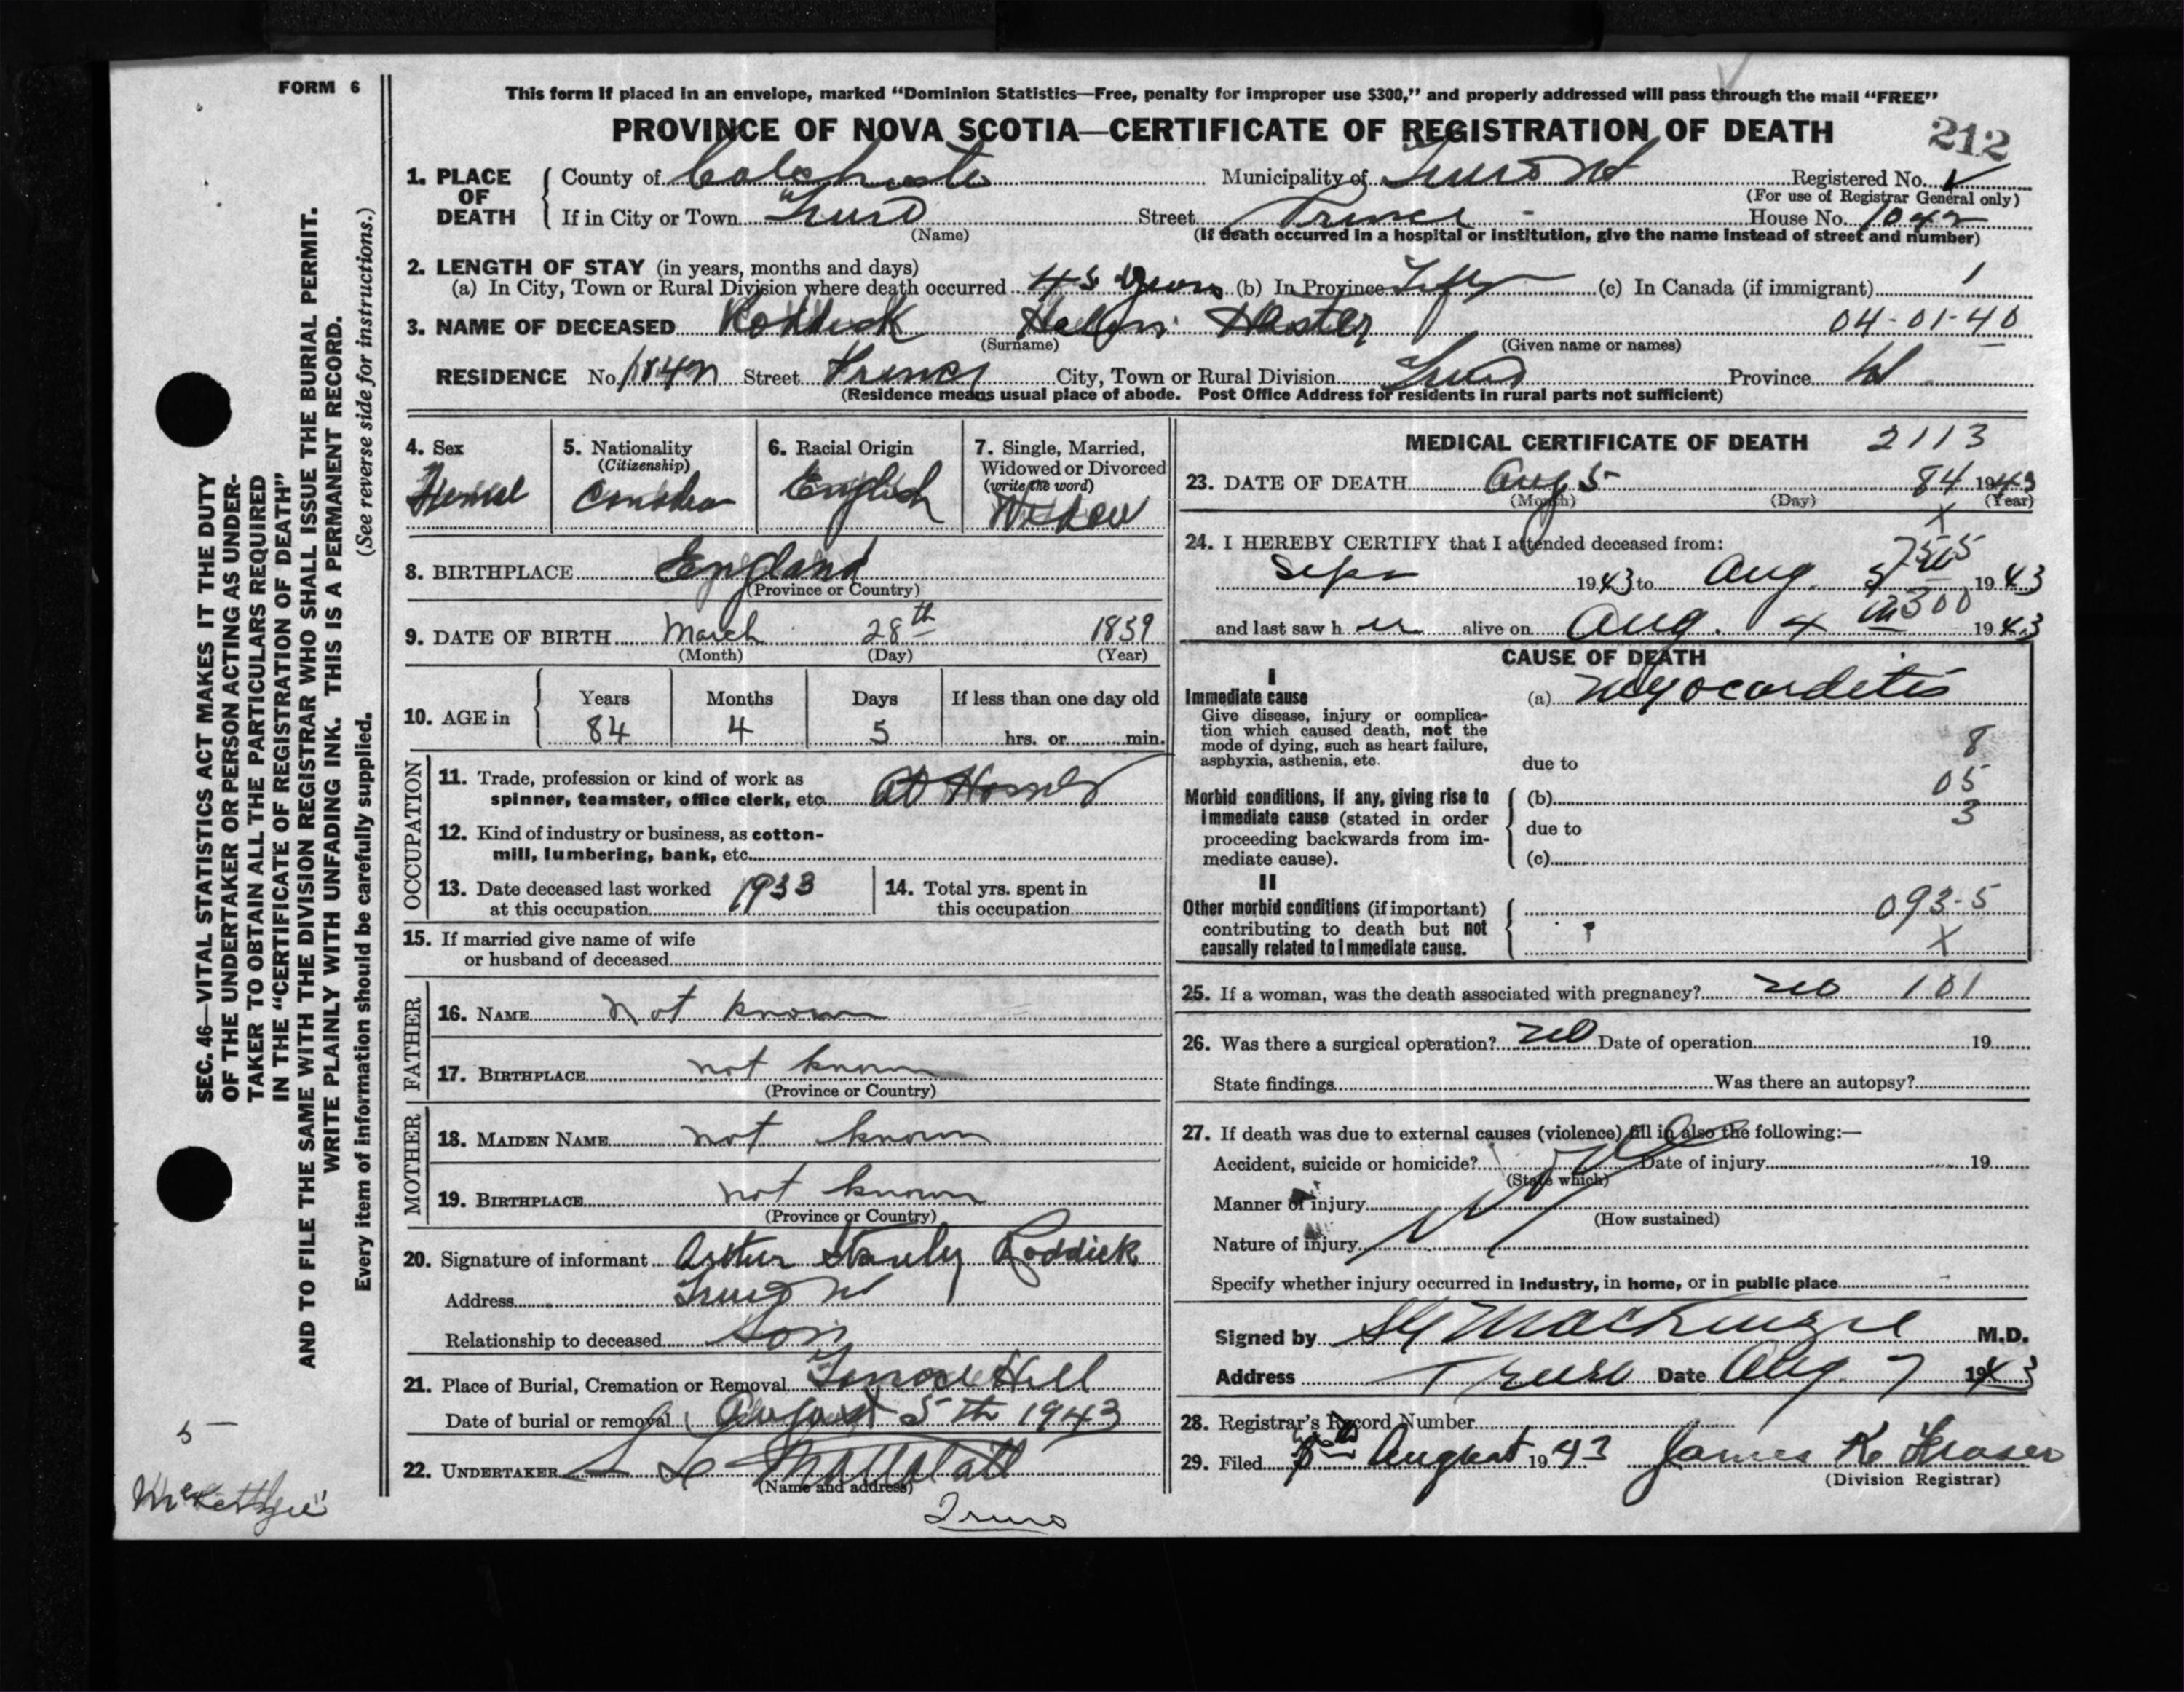 FORM 6
This form if placed in an envelope, marked “Dominion Statistics—Free, penalty for improper use $300,” and properly addressed will pass through the mail “FREE”
PROVINCE OF NOVA SCOTIA—CERTIFICATE OF REGISTRATION OF DEATH
212
1. PLACE OF DEATH
County of Colchester Municipality of Truro NS Registered No.
(For use of Registrar General only)
If in City or Town Truro Street Prince House No. 1042
(Name) (If death occurred in a hospital or institution, give the name instead of street and number)
2. LENGTH OF STAY (in years, months and days)
(a) In City, Town or Rural Division where death occurred 45 Years (b) In Province (c) In Canada (if immigrant)
3. NAME OF DECEASED Roddick Helen Hester 04-01-40
(Surname) (Given name or names)
RESIDENCE No. Street Prince City, Town or Rural Division Truro Province
(Residence means usual place of abode. Post Office Address for residents in rural parts not sufficient)
4. Sex
Female
5. Nationality
(Citizenship)
Canadian
6. Racial Origin
English
7. Single, Married,
Widowed or Divorced
(write the word)
Widow
8. BIRTHPLACE England
(Province or Country)
9. DATE OF BIRTH March 28th 1859
(Month) (Day) (Year)
10. AGE in
Years Months Days If less than one day old
84 4 5 hrs. or min.
OCCUPATION
11. Trade, profession or kind of work as
spinner, teamster, office clerk, etc. At Home
12. Kind of industry or business, as cotton-
mill, lumbering, bank, etc.
13. Date deceased last worked
at this occupation 1933
14. Total yrs. spent in
this occupation
15. If married give name of wife
or husband of deceased
FATHER
16. NAME not known
17. BIRTHPLACE not known
(Province or Country)
MOTHER
18. MAIDEN NAME not known
19. BIRTHPLACE not known
(Province or Country)
20. Signature of informant Arthur Stanley Roddick
Address Truro NS
Relationship to deceased Son
21. Place of Burial, Cremation or Removal Hill
Date of burial or removal August 5th 1943
22. UNDERTAKER
(Name and address)
Truro
MEDICAL CERTIFICATE OF DEATH 2113
23. DATE OF DEATH Aug 5 84 1943
(Month) (Day) (Year)
X
24. I HEREBY CERTIFY that I attended deceased from:
1943 to Aug. 5 1943
and last saw her alive on Aug. 4 1943
CAUSE OF DEATH
I
Immediate cause
Give disease, injury or complica-
tion which caused death, not the
mode of dying, such as heart failure,
asphyxia, asthenia, etc.
(a) Myocarditis
8
due to
05
Morbid conditions, if any, giving rise to
immediate cause (stated in order
proceeding backwards from im-
mediate cause).
(b)
3
due to
(c)
II
Other morbid conditions (if important)
contributing to death but not
causally related to immediate cause.
093-5
X
25. If a woman, was the death associated with pregnancy? no 101
26. Was there a surgical operation? no Date of operation 19
State findings Was there an autopsy?
27. If death was due to external causes (violence) fill in also the following:—
Accident, suicide or homicide? Date of injury 19
(State which)
Manner of injury
(How sustained)
Nature of injury
Specify whether injury occurred in industry, in home, or in public place
Signed by MacKenzie M.D.
Address Truro Date Aug. 7 1943
28. Registrar's Record Number
29. Filed August 1943 James K Fraser
(Division Registrar)
SEC. 46—VITAL STATISTICS ACT MAKES IT THE DUTY
OF THE UNDERTAKER OR PERSON ACTING AS UNDER-
TAKER TO OBTAIN ALL THE PARTICULARS REQUIRED
IN THE “CERTIFICATE OF REGISTRATION OF DEATH”
AND TO FILE THE SAME WITH THE DIVISION REGISTRAR WHO SHALL ISSUE THE BURIAL PERMIT.
WRITE PLAINLY WITH UNFADING INK. THIS IS A PERMANENT RECORD.
Every item of information should be carefully supplied. (See reverse side for instructions.)
5